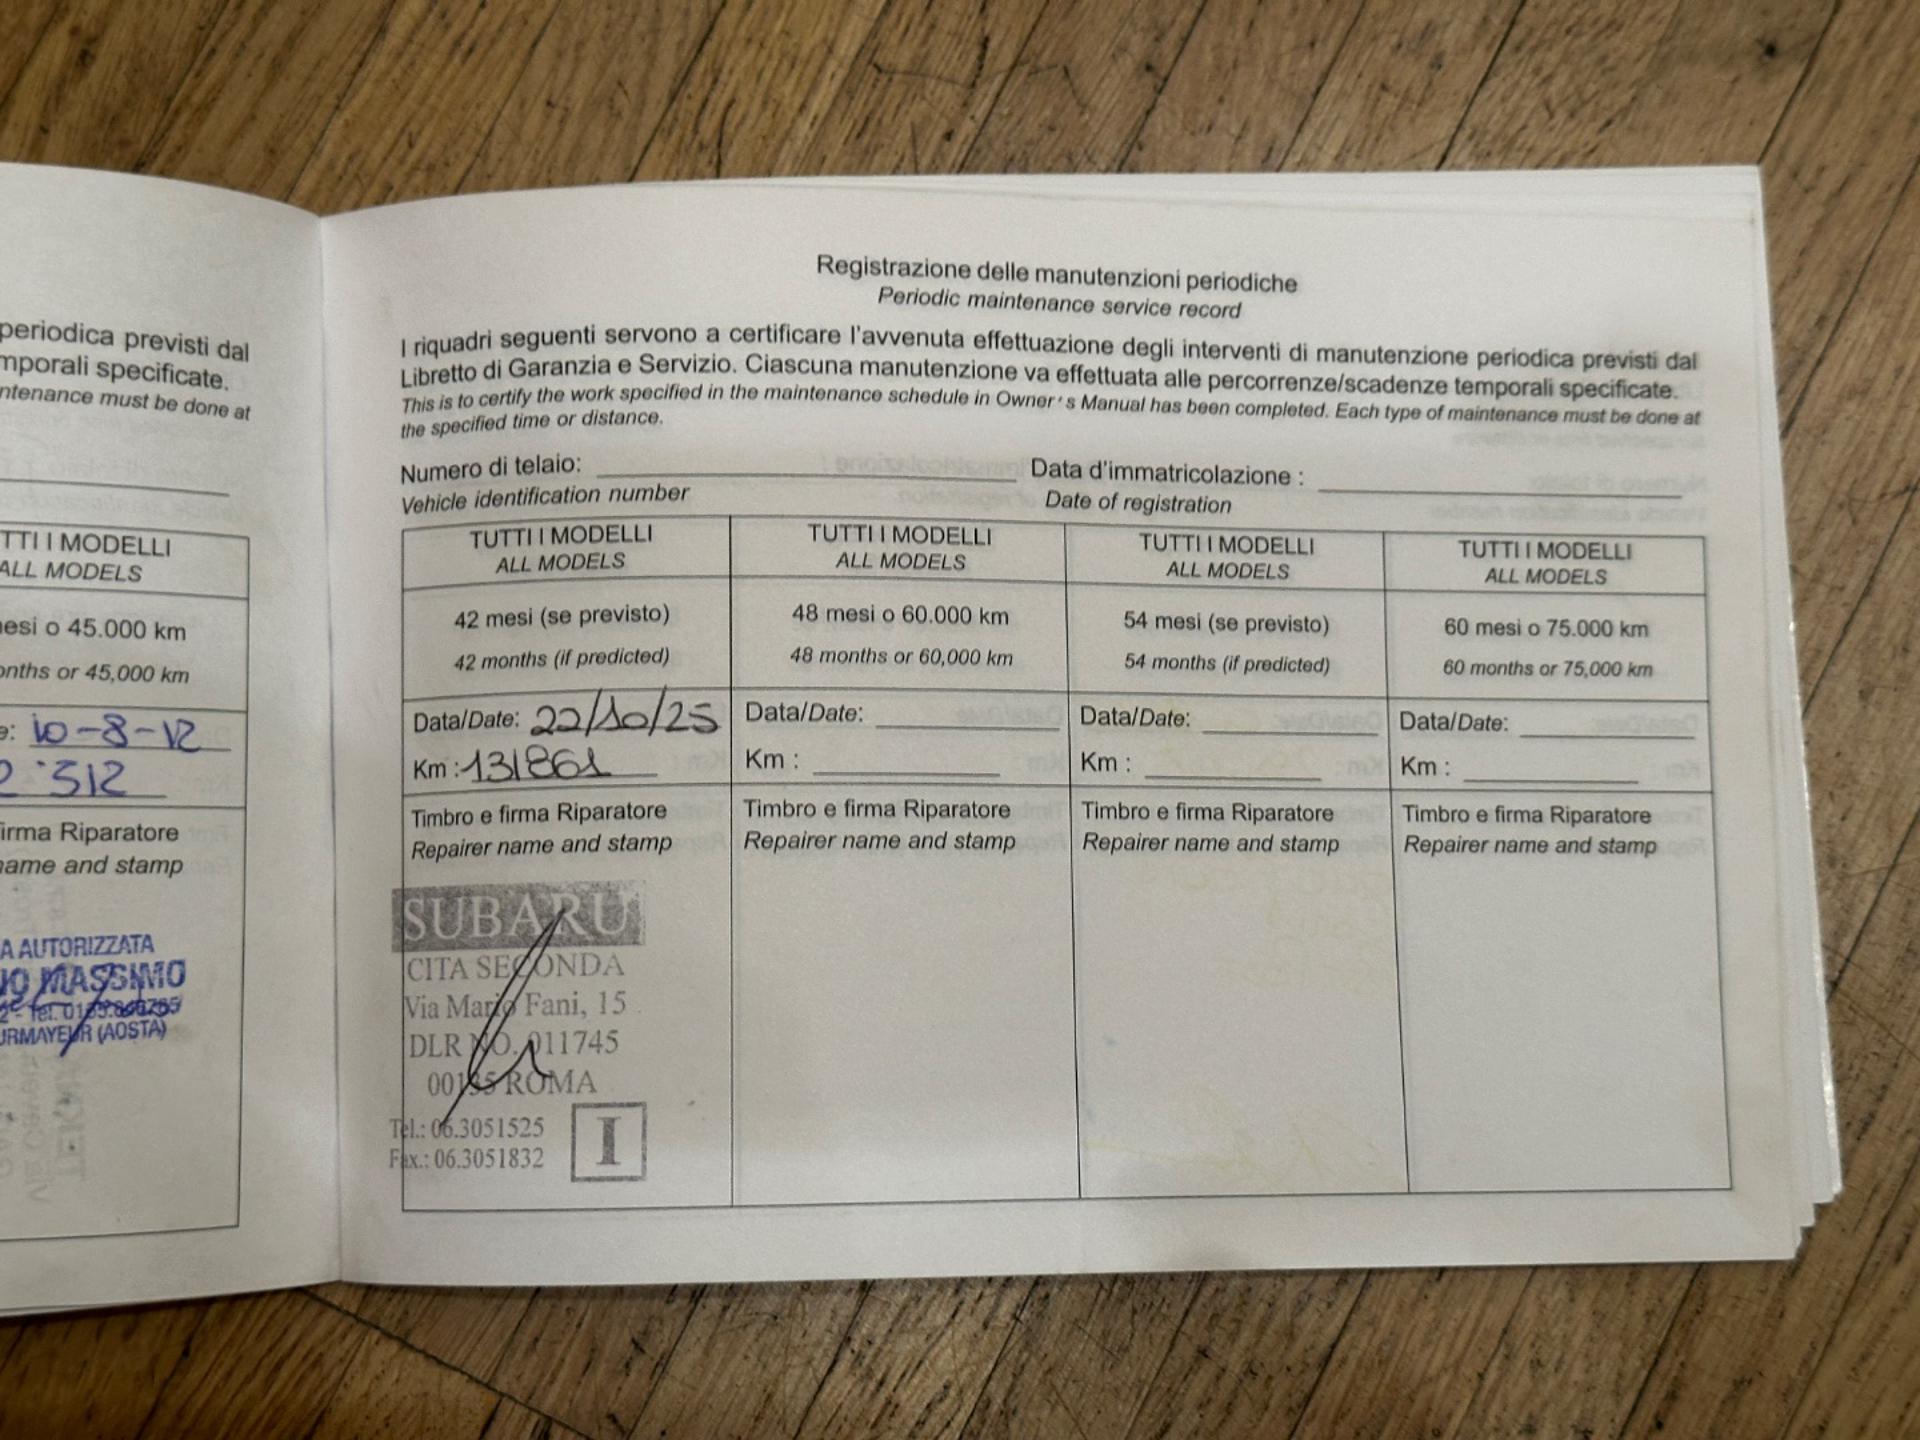 periodica previsti dal
mporali specificate.
ntenance must be done at
TTI I MODELLI
ALL MODELS
esi o 45.000 km
onths or 45,000 km
e: 10-8-12
2.512
irma Riparatore
name and stamp
A AUTORIZZATA
NO MASSIMO
URMAYEUR (AOSTA)
Registrazione delle manutenzioni periodiche
Periodic maintenance service record
I riquadri seguenti servono a certificare l'avvenuta effettuazione degli interventi di manutenzione periodica previsti dal
Libretto di Garanzia e Servizio. Ciascuna manutenzione va effettuata alle percorrenze/scadenze temporali specificate.
This is to certify the work specified in the maintenance schedule in Owner's Manual has been completed. Each type of maintenance must be done at
the specified time or distance.
Numero di telaio: Data d'immatricolazione :
Vehicle identification number Date of registration
TUTTI I MODELLI TUTTI I MODELLI TUTTI I MODELLI TUTTI I MODELLI
ALL MODELS ALL MODELS ALL MODELS ALL MODELS
42 mesi (se previsto) 48 mesi o 60.000 km 54 mesi (se previsto) 60 mesi o 75.000 km
42 months (if predicted) 48 months or 60,000 km 54 months (if predicted) 60 months or 75,000 km
Data/Date: 22/10/25 Data/Date: Data/Date: Data/Date:
Km : 131861 Km : Km : Km :
Timbro e firma Riparatore Timbro e firma Riparatore Timbro e firma Riparatore Timbro e firma Riparatore
Repairer name and stamp Repairer name and stamp Repairer name and stamp Repairer name and stamp
SUBARU
CITA SECONDA
Via Mario Fani, 15
DLR NO. 011745
00135 ROMA
Tel.: 06.3051525
Fax.: 06.3051832
I